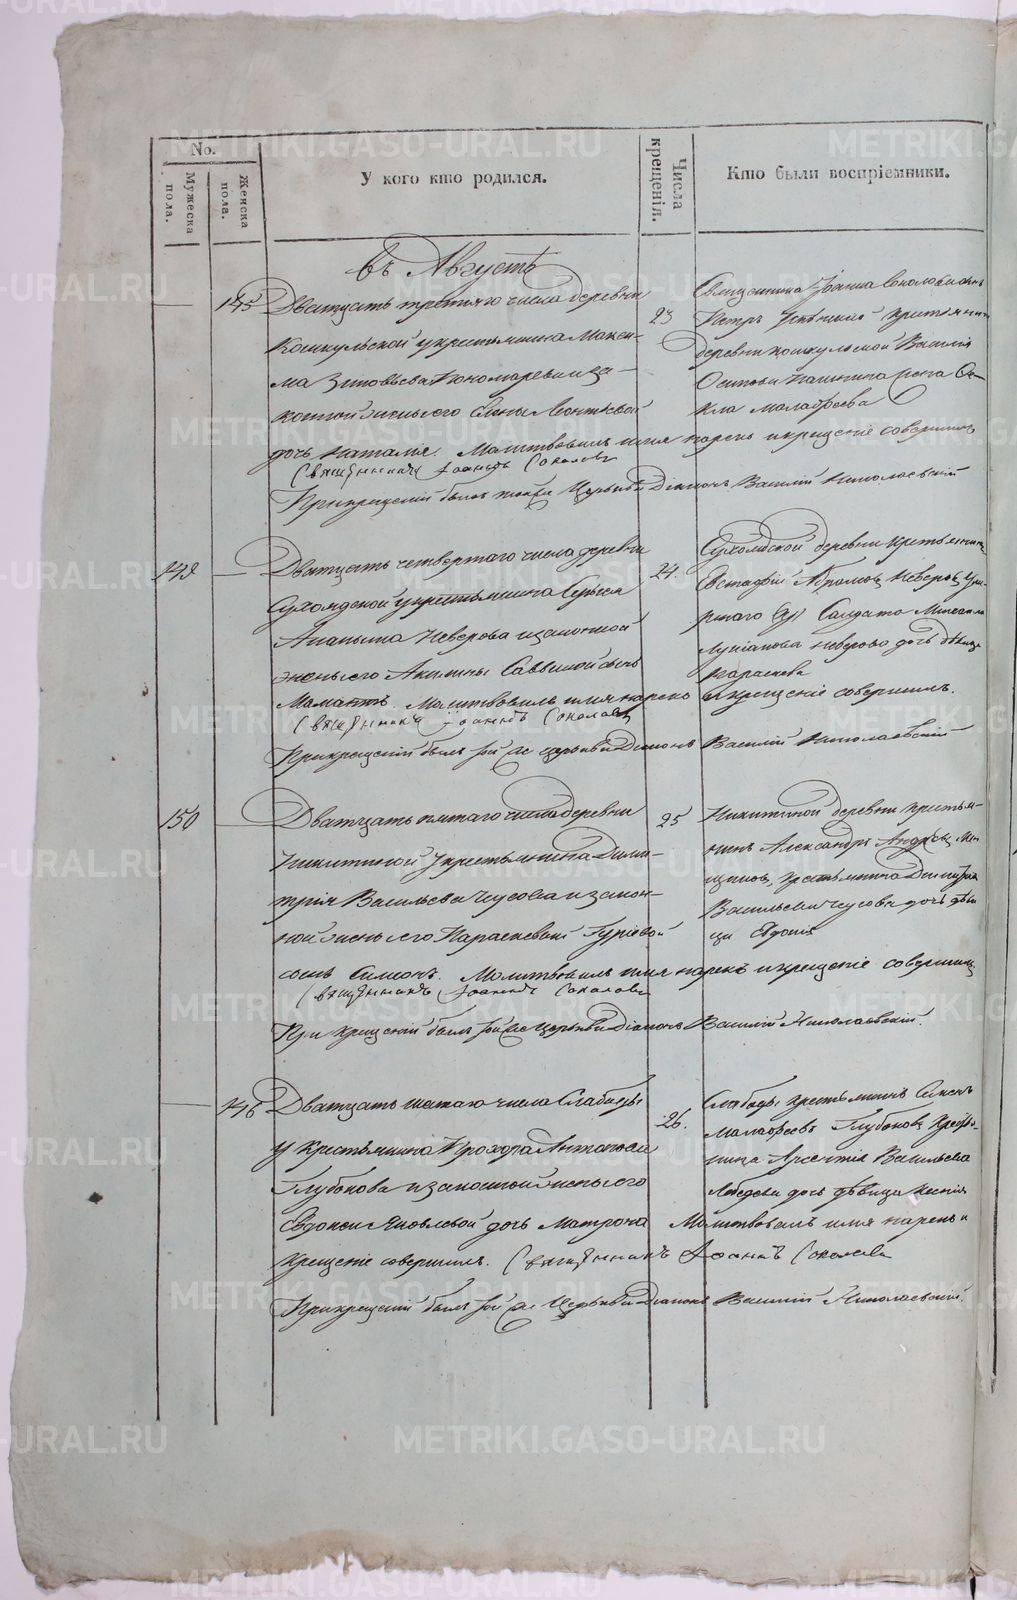 No.
Мужеска пола.
Женска пола.
У кого кто родился.
Числа крещенія.
Кто были воспріемники.
Въ Августѣ
145 Дватцать третьяго числа деревни
Кошкульской укрестьянина Макси-
ма Зиновьева Пономарева иза-
конной жены его Елены Леонтьевой
дочь Наталія. Молитвовалъ имя нарекъ икрещеніе совершилъ
Священникъ Іоаннъ Соколовъ
Прикрещеніи былъ тойже Церькви Діаконъ Василій Николаевскій
23
Священника Іоанна Соколова сынъ
Петръ крестьянинъ
деревни кошкульской Василія
Осипова
кла Малафеева
149 Дватцать четвертаго числа деревни
Сухоядской укрестьянина Сергея
Ананьина Неверова изаконной
жены его Акилины Саввиной сынъ
Мамантъ. Молитвовалъ имя нареко икрещеніе совершилъ.
Священникъ Іоаннъ Соколовъ
Прикрещеніи былъ той же церькви Діаконъ Василій Николаевскій
24.
деревни крестьянинъ
Евстафій Абрамовъ Неверовъ
Салдата
Лукіанова Неверова дочь дѣвица
параскева
150 Дватцать пятаго числа деревни
Никитиной укрестьянина Дими-
трія Васильева Чусова изакон-
ной жены его Параскевы Гуріевой
сынъ Симеонъ. Молитвовалъ имя нарекъ икрещеніе совершилъ
Священникъ Іоаннъ Соколовъ
При крещеніи былъ той же церькви Діаконъ Василій Николаевскій.
25
Никитиной деревни крестья-
нинъ Александръ Андреевъ
крестьянина Димитрія
Васильева Чусова дочь дѣви-
ца Евдокія
146 Дватцать шестаго числа Слабоды
у крестьянина Прохора Антонова
Глубокова изаконной жены его
Евдокеи Яковлевой дочь Матрона Молитвовалъ имя нарекъ и
Крещеніе совершилъ. Священникъ Іоаннъ Соколовъ
Прикрещеніи былъ той же Церькви Діаконъ Василій Николаевскій.
26.
Слабоды крестьянинъ Семенъ
Малафеевъ Глубоковъ крестья-
нина Арсентія Васильева
Лебедева дочь дѣвица Ксенія
METRIKI.GASO-URAL.RU